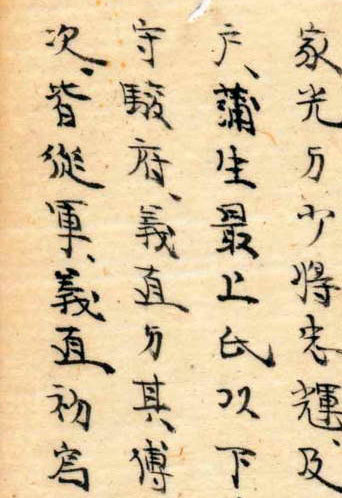 家光与少將忠輝、及
戸、蒲生最上氏以下
守駿府、義直与其傅
次、皆從軍、義直初寫